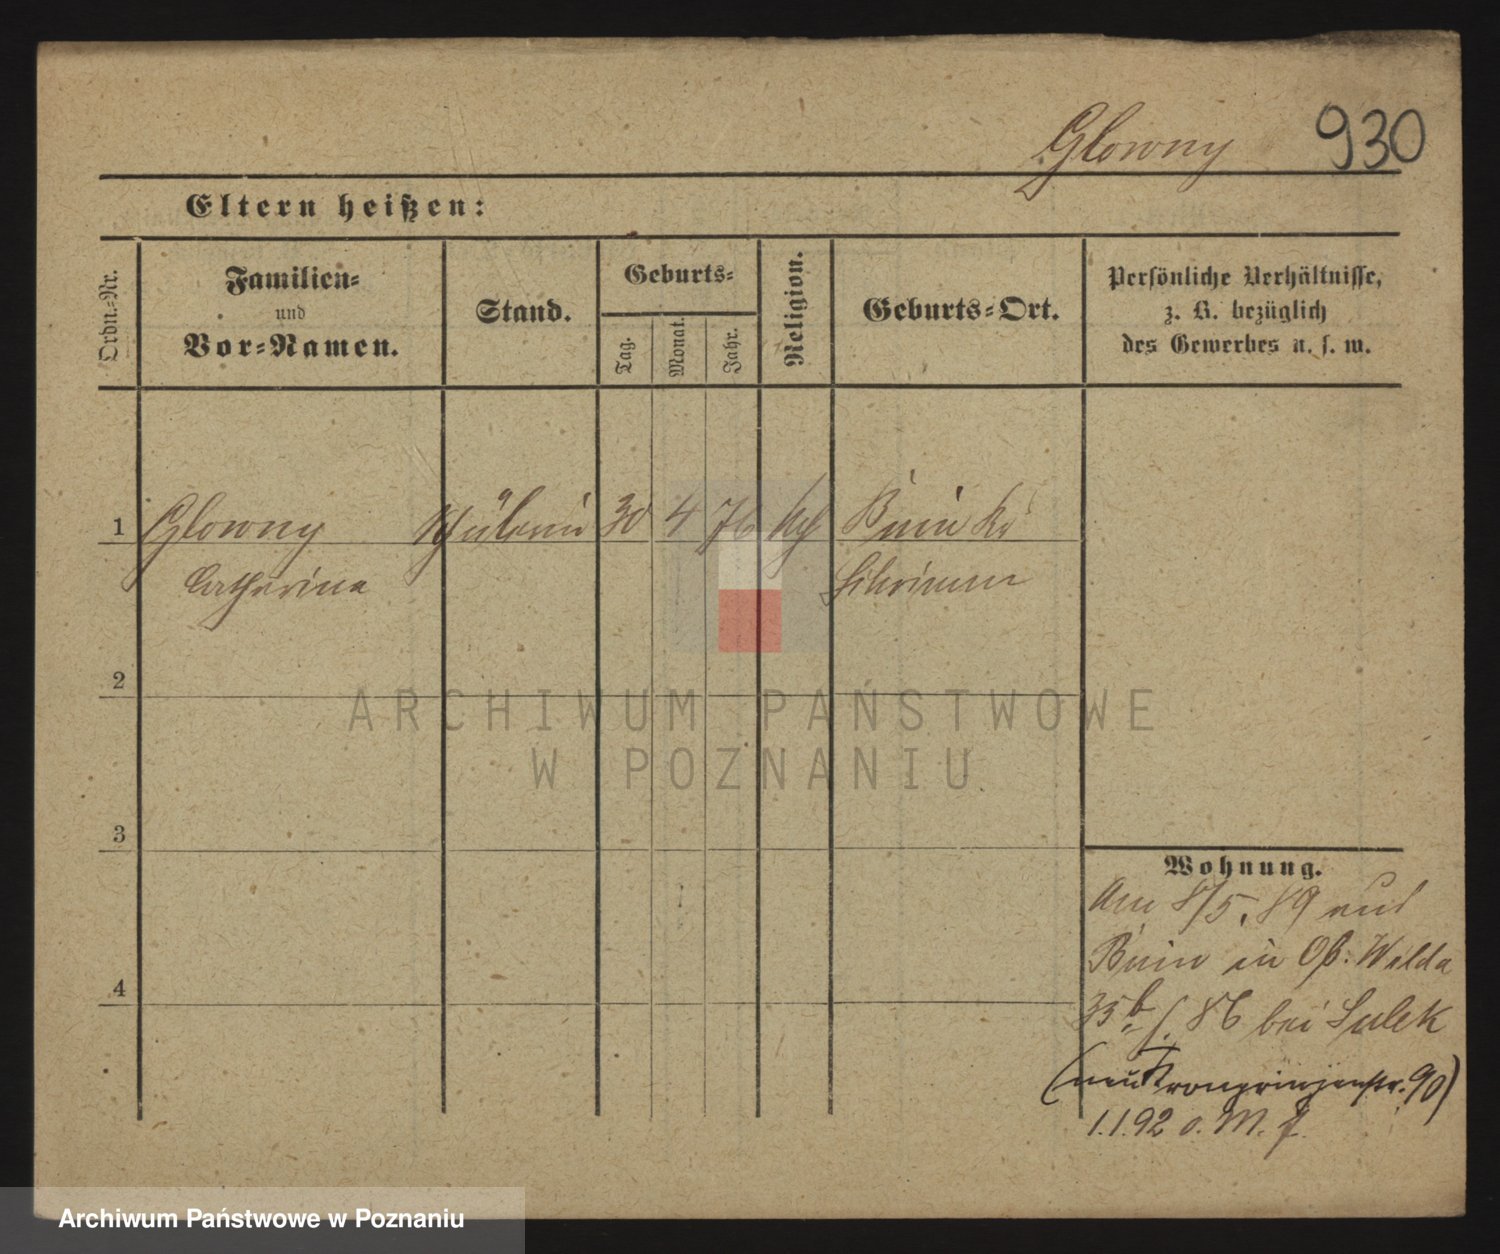 Glowny 930
Eltern heißen:
Ordn.-Nr.
Familien-
und
Vor-Namen.
Stand.
Geburts-
Tag.
Monat.
Jahr.
Religion.
Geburts-Ort.
Persönliche Verhältnisse,
z. B. bezüglich
des Gewerbes u. s. w.
1 Glowny Schülerin 30 4 76 kth Bnin Kr
Catherine Schrimm
2
3
4
Wohnung.
Am 8/5. 89 aus
Bnin in Ob. Wilda
35b f. 86 bei Sulek
(neu Kronprinzenstr. 90)
1.1.92 o. M.
ARCHIWUM PAŃSTWOWE
W POZNANIU
Archiwum Państwowe w Poznaniu